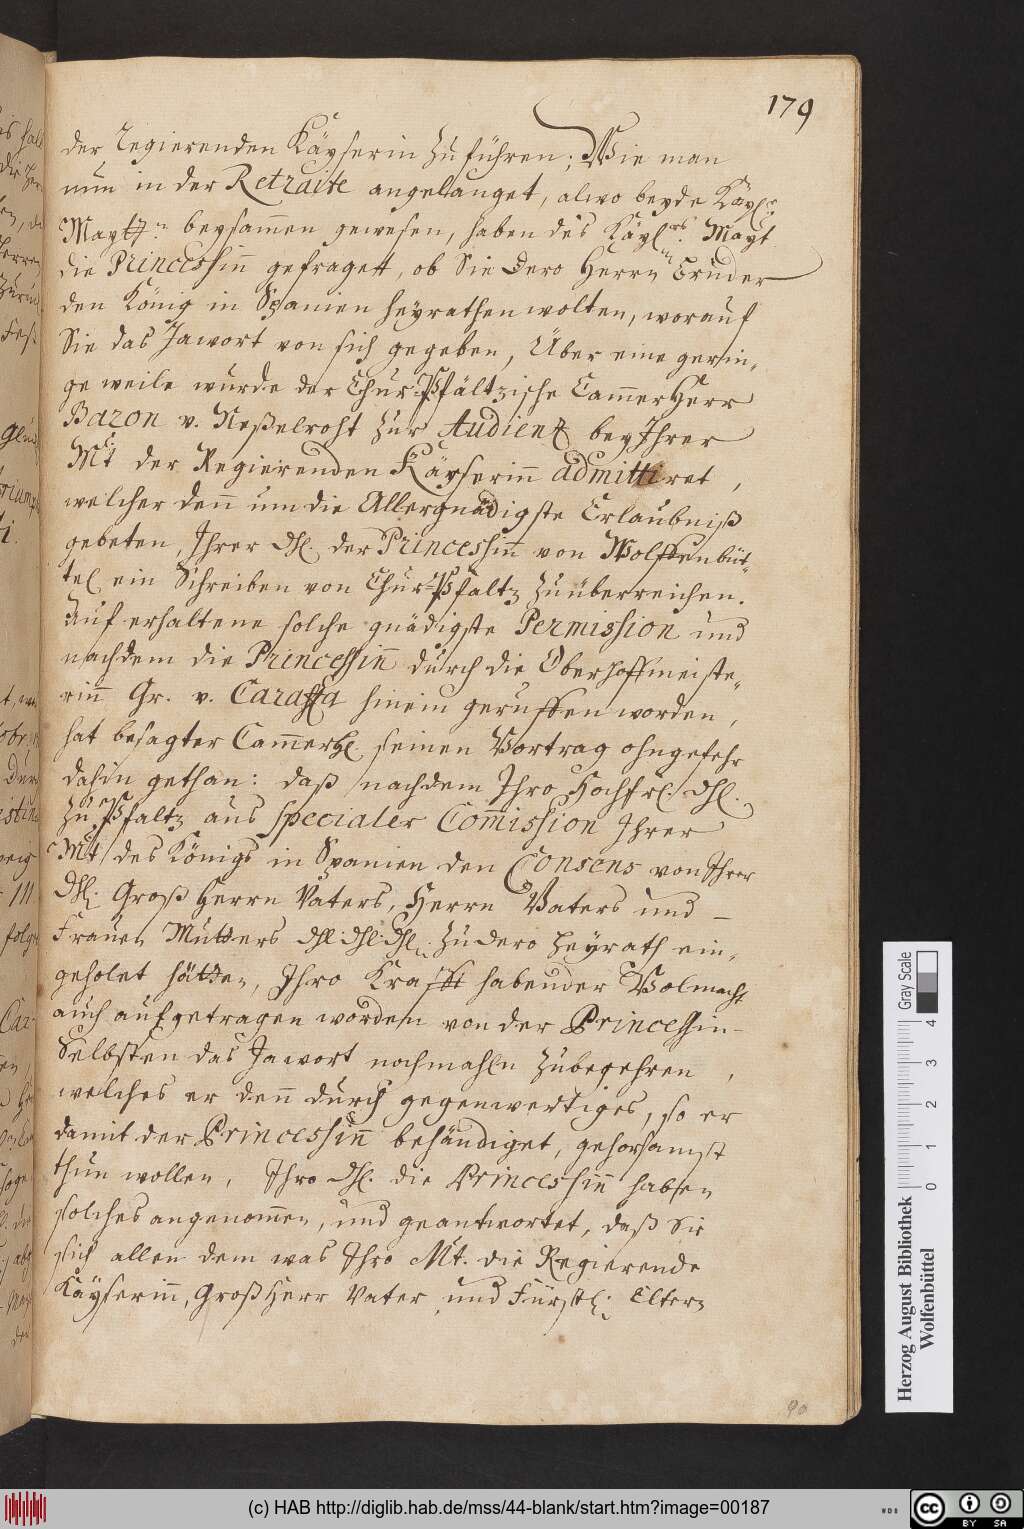 179
der regierenden Käyserin zuführen; Wie man
nun in der Retraite angelanget, alwo beyde Käyl.
Maytt.n beysam̃en gewesen, haben des Käyl. Mayt
die Princessin̄ gefraget, ob Sie Dero Herrn Brüder
den König in Spanien heyrathen wolten, worauf
Sie das Jawort von sich gegeben, Über eine gerin,
ge weile wurde der Chur-Pfältzische Cam̃erHerr
Baron v. Neßelroht zur Audientz bey Ihrer
Mt. der Regierenden Käyserin̄ admittiret,
welcher den̄ um die Allergnädigste Erlaubniß
gebeten, Ihrer Dhl. der Princessin̄ von Wolffenbüt-
tel ein Schreiben von Chur-Pfaltz zuüberreichen.
Auf erhaltene solche gnädigste Permission und
nachdem die Princessin̄ durch die Oberhoffmeiste-
rin̄ Gr. v. Caraffa hinein geruffen worden,
hat besagter Cam̃erh. seinen Vortrag ohngefehr
dahin gethan: daß nachdem Ihro Hochfrl. Dhl.
zu Pfaltz aus specialer Com̃ission Ihrer
Mt des Königs in Spanien den Consens von Ihrer
Dhl. Groß Herrn Vaters, Herrn Vaters und –
Frauen Mutters Dhl: Dhl: Dhl. zu dero Heyrath ein,
geholet hätten, Ihro Krafft habender Volmacht
auch aufgetragen worden von der Princessin–
Selbsten das Jawort nochmahln zubegehren,
welches er den̄ durch gegenwertiges, so er
damit der Princessin̄ behändiget, gehorsamst
thun wollen, Ihro Dhl. die Princessin̄ haben
solches angenom̃en, und geantwortet, daß Sie
sich allen dem was Ihro Mt. die Regierende
Käyserin̄, GroßHerr Vater und Fürstl. Eltern
90
Herzog August Bibliothek
Wolfenbüttel
Gray Scale
0 1 2 3 4
(c) HAB http://diglib.hab.de/mss/44-blank/start.htm?image=00187
WDB
cc BY SA